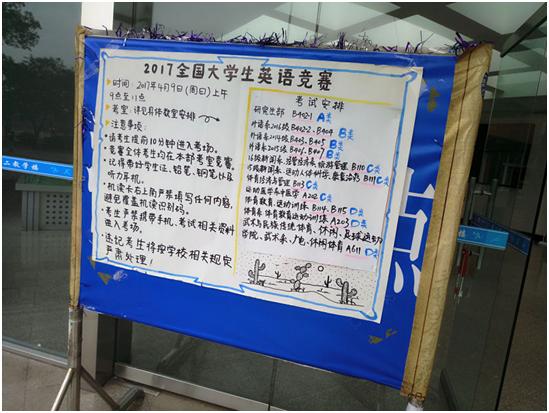 2017全国大学生英语竞赛
时间：2017年4月9日（周日）上午
9点至11点
考室：详见具体教室安排
注意事项：
请考生提前10分钟进入考场。
竞赛全体考生均在本部考室竞赛。
记得带好学生证、铅笔、钢笔以及
听力耳机。
机读卡右上角严禁填写任何内容，
避免覆盖机读识别码。
考生严禁携带手机、考试相关资料
进入考场。
违纪考生将按学校相关规定
严肃处理！
考试安排
研究生部 B402-1 A类
外语系2013级 B402-2、B404 B类
外语系2014级 B403、B405 B类
外语系2015级 B406、B407 B类
经管系、旅游管理 B110 C类
运动人体科学、教育 B111 C类
体育经济与管理 B113 C类
运动医学系中医学 A202 D类
体育教育、运动训练 B114、B115 D类
体育系体育教育运动训练 A203 D类
武术与民族传统体育、休闲、足球运动
学院、武术系、广电、休闲体育 A611 D类
二教学楼